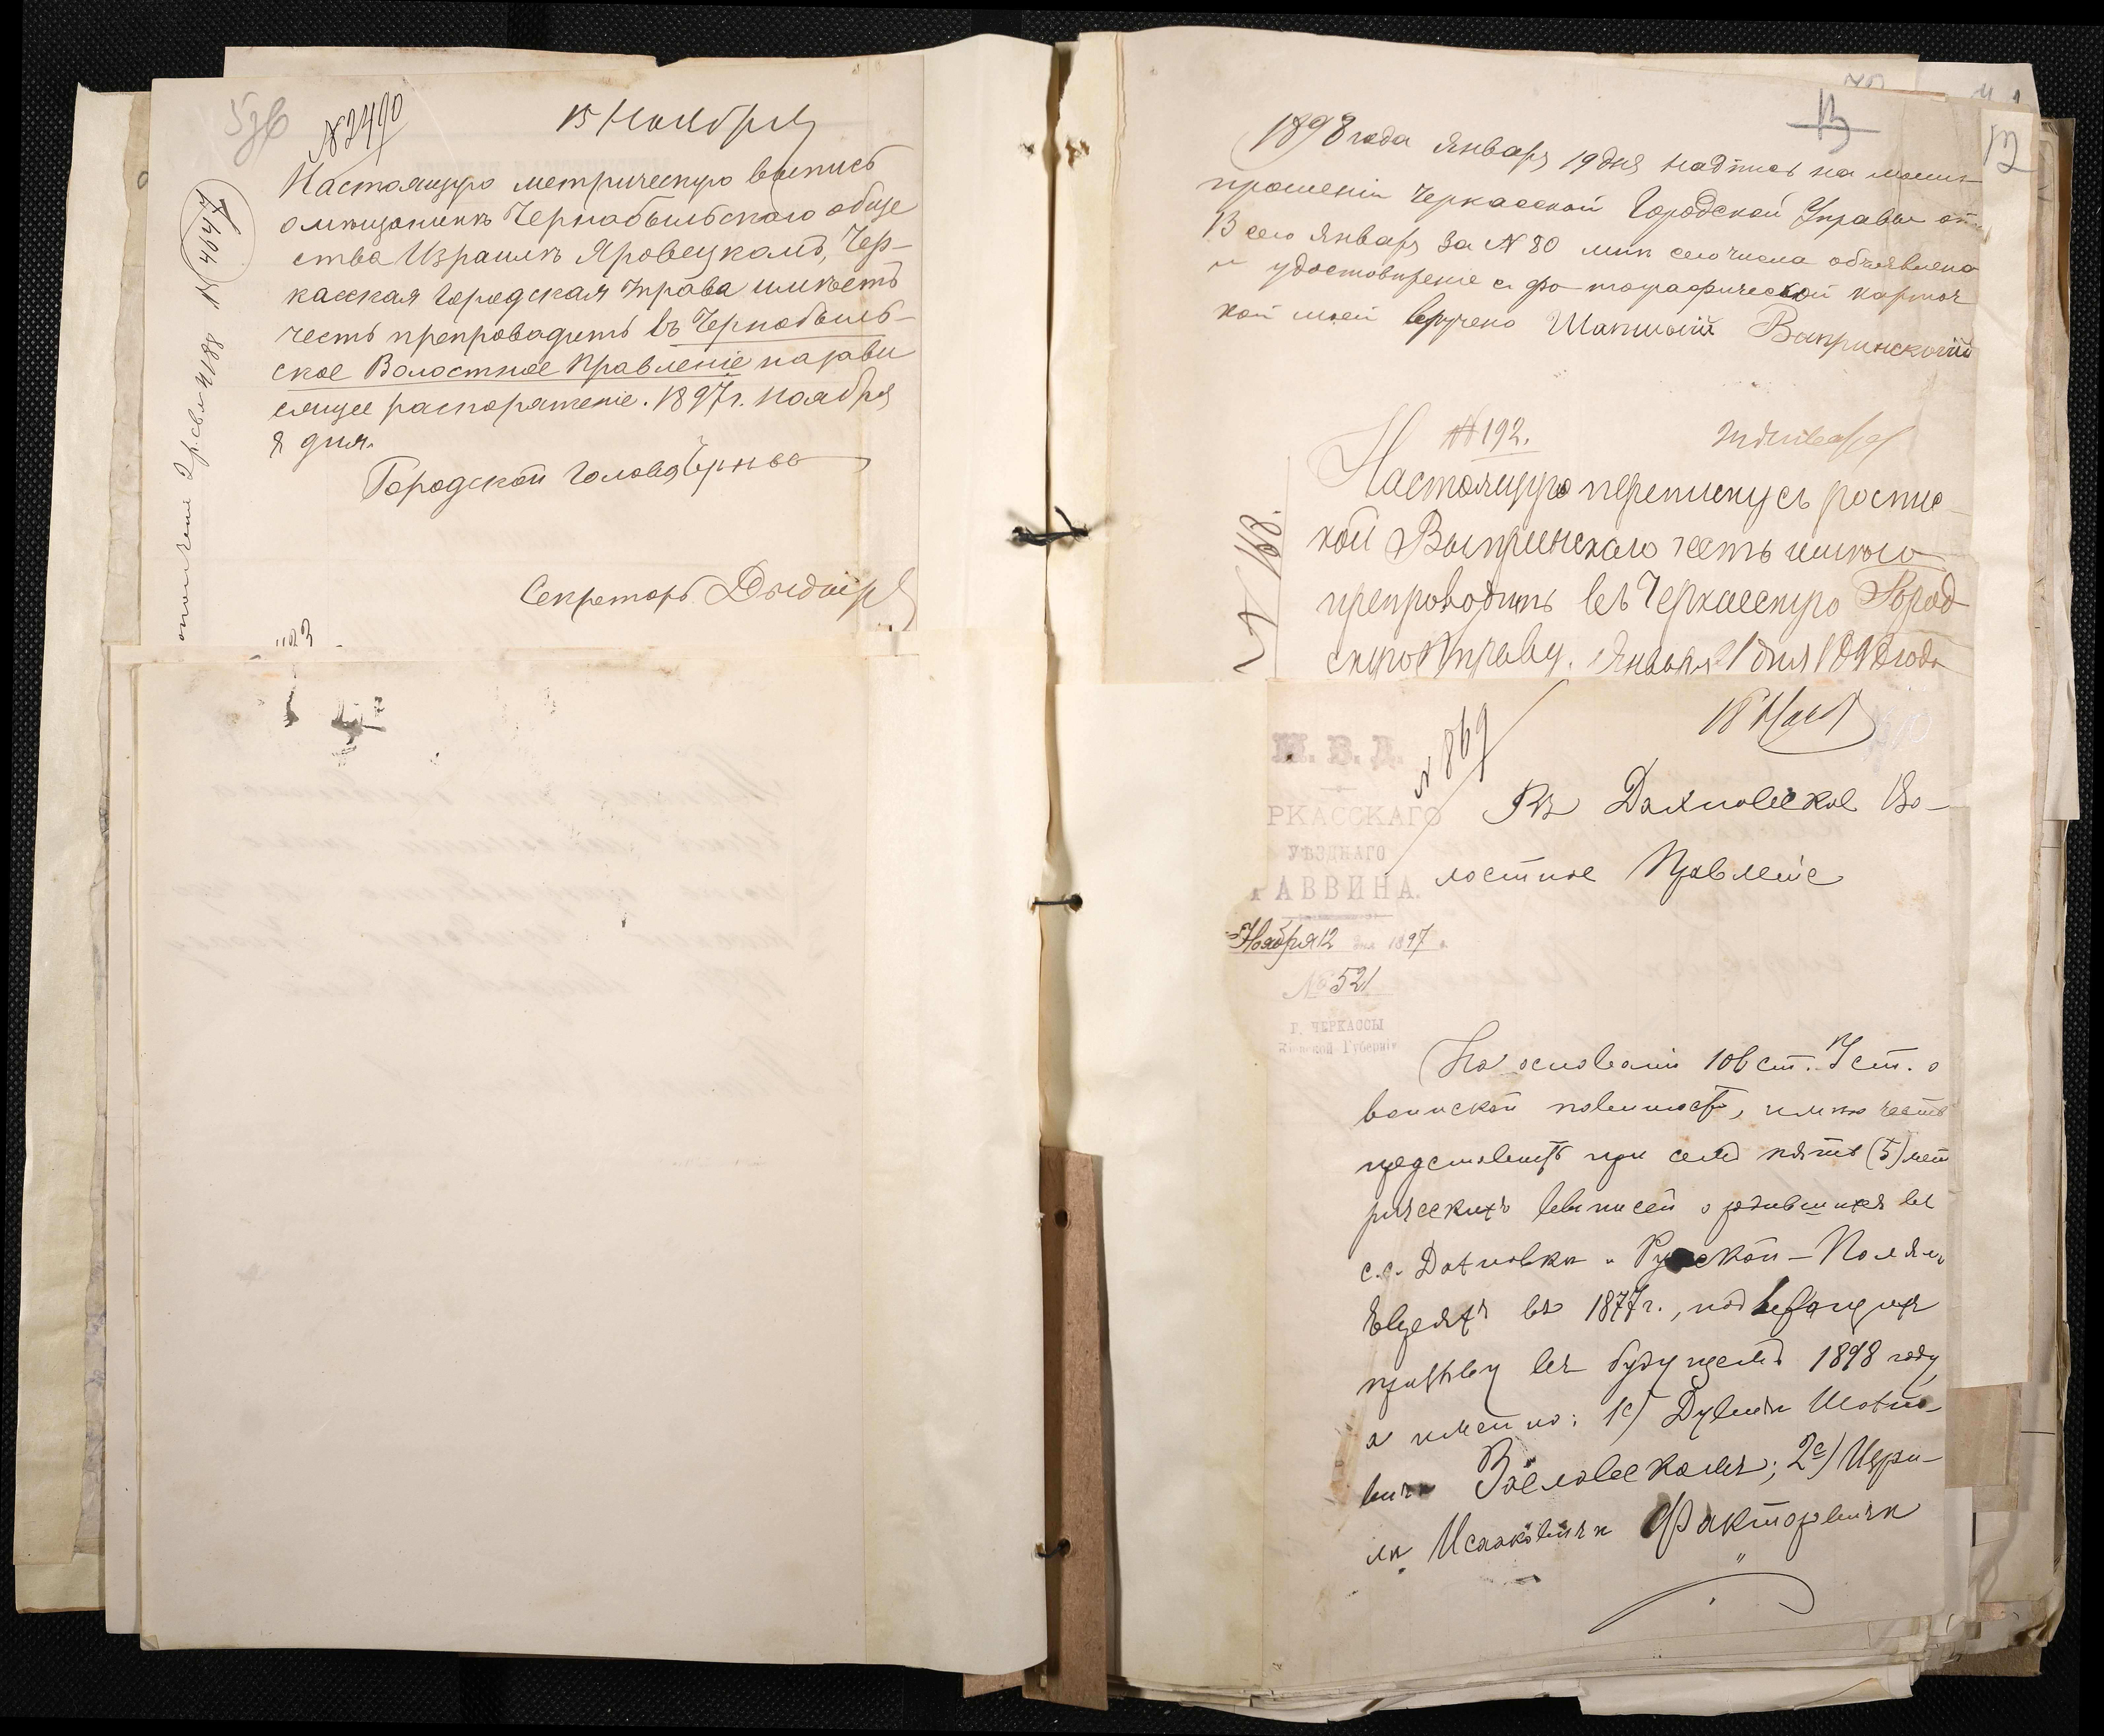 № 2490
15 Ноября
Настоящую метрическую выпись
о мѣщанинѣ Чернобыльскаго обще
ства Израилѣ Яровецкомъ, Чер-
касская Городская Управа имѣетъ
честь препроводить въ Чернобыль-
ское Волостное Правленіе на зави
сящее распоряженіе. 1897 г. Ноября
8 дня.
Городской Голова
Секретарь
№ 4647
13
12
1898 года Января 19 дня надпись на моемъ
прошеніи Черкасской Городской Управы отъ
13 сего Января за № 80 мнѣ сего числа объявлена
и удостовѣреніе с фотографической карточ
кой моей вручено
№ 192.
Настоящую переписку съ роспис-
кой Выпринскаго честь имѣю
препроводить въ Черкасскую Город
скую Управу. Января 1 дня 1898 года
№ 168.
18 Нояб
№ 869
М. В. Д.
РКАССКАГО
УѢЗДНАГО
РАВВИНА.
Ноября 12 дня 1897 г.
№ 521
Г. ЧЕРКАССЫ
Кіевской Губерніи
Въ Дахновское Во-
лостное Правленіе
На основаніи 106 ст. Уст. о
воинской повинност, имѣю честь
представить при семъ пять (5) мет
рическихъ выписей о родившихся въ
с.с. Дахновкѣ и Русской-Полянѣ
Евреяхъ въ 1877 г., подлежащихъ
призыву въ будущемъ 1898 году,
а именно: 1е)
2е) Изра-
лѣ Исааковичѣ Факторовичѣ